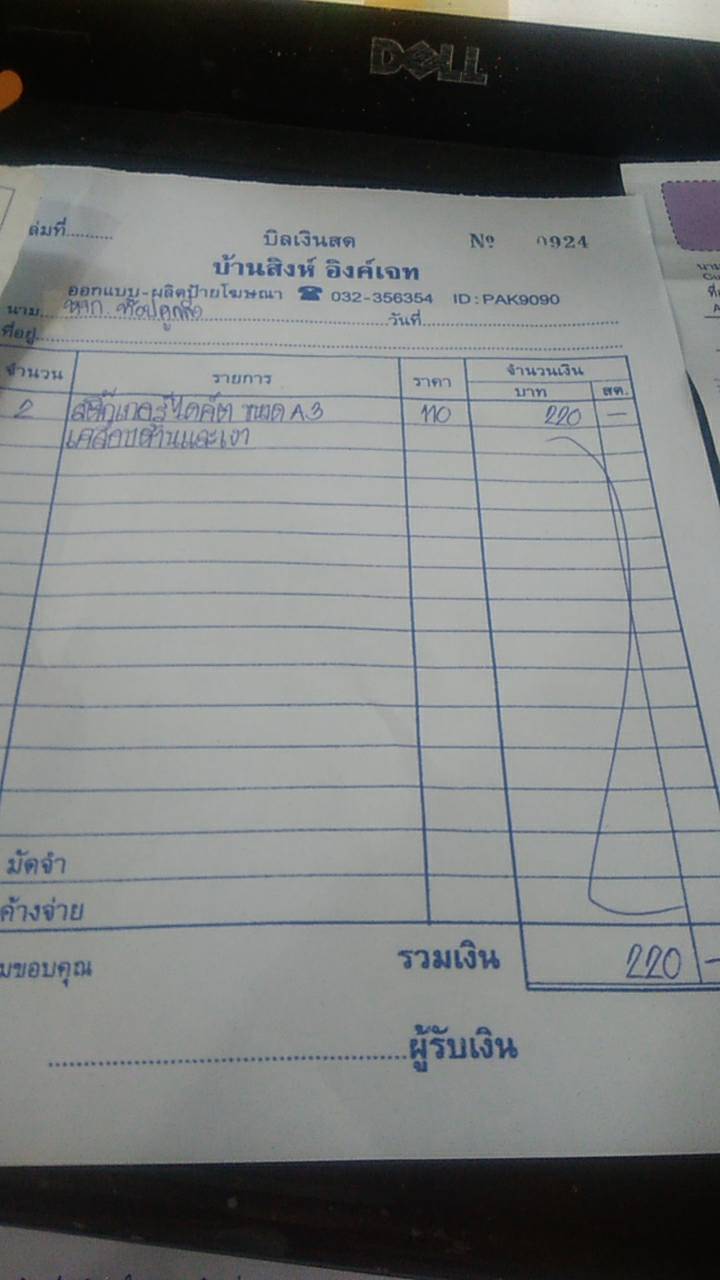 DELL
เล่มที่..........
บิลเงินสด
Nº 0924
บ้านสิงห์ อิงค์เจท
ออกแบบ-ผลิตป้ายโฆษณา ☎ 032-356354 ID:PAK9090
นาม หจก. ท๊อปคูลลิ่ง วันที่
ที่อยู่
จำนวน รายการ ราคา จำนวนเงิน
บาท สต.
2 สติ๊กเกอร์ไดคัต ขนาด A3 110 220 —
เคลือบด้านและเงา
มัดจำ
ค้างจ่าย
ขอบคุณ รวมเงิน 220 —
ผู้รับเงิน